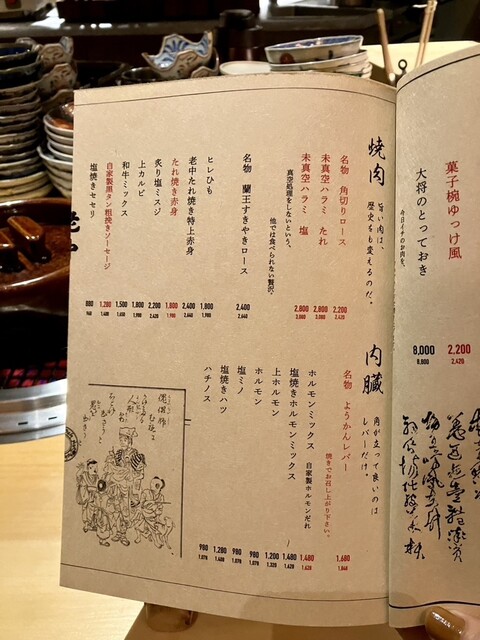 菓子椀ゆっけ風
2,200
2,420
大将のとっておき
今日イチのお肉を。
8,000
8,800
焼肉
旨い肉は、
歴史をも変えるのだ。
名物 角切りロース
2,200
2,420
未真空ハラミ たれ
2,800
3,080
未真空ハラミ 塩
2,800
3,080
真空処理をしないという、
他では食べられない贅沢。
名物 蘭王すきやきロース
2,400
2,640
ヒレひも
1,800
1,980
老中たれ焼き特上赤身
2,400
2,640
たれ焼き赤身
1,800
1,980
炙り塩ミスジ
2,200
2,420
上カルビ
1,800
1,980
和牛ミックス
1,500
1,650
自家製黒タン粗挽きソーセージ
1,280
1,408
塩焼きセセリ
880
968
内臓
角が立って良いのは
レバーだけ。
名物 ようかんレバー
焼きでお召し上がり下さい。
1,680
1,848
ホルモンミックス 自家製ホルモンだれ
1,480
1,628
塩焼きホルモンミックス
1,480
1,628
上ホルモン
1,200
1,320
ホルモン
980
1,078
塩ミノ
980
1,078
塩焼きハツ
1,280
1,408
ハチノス
980
1,078